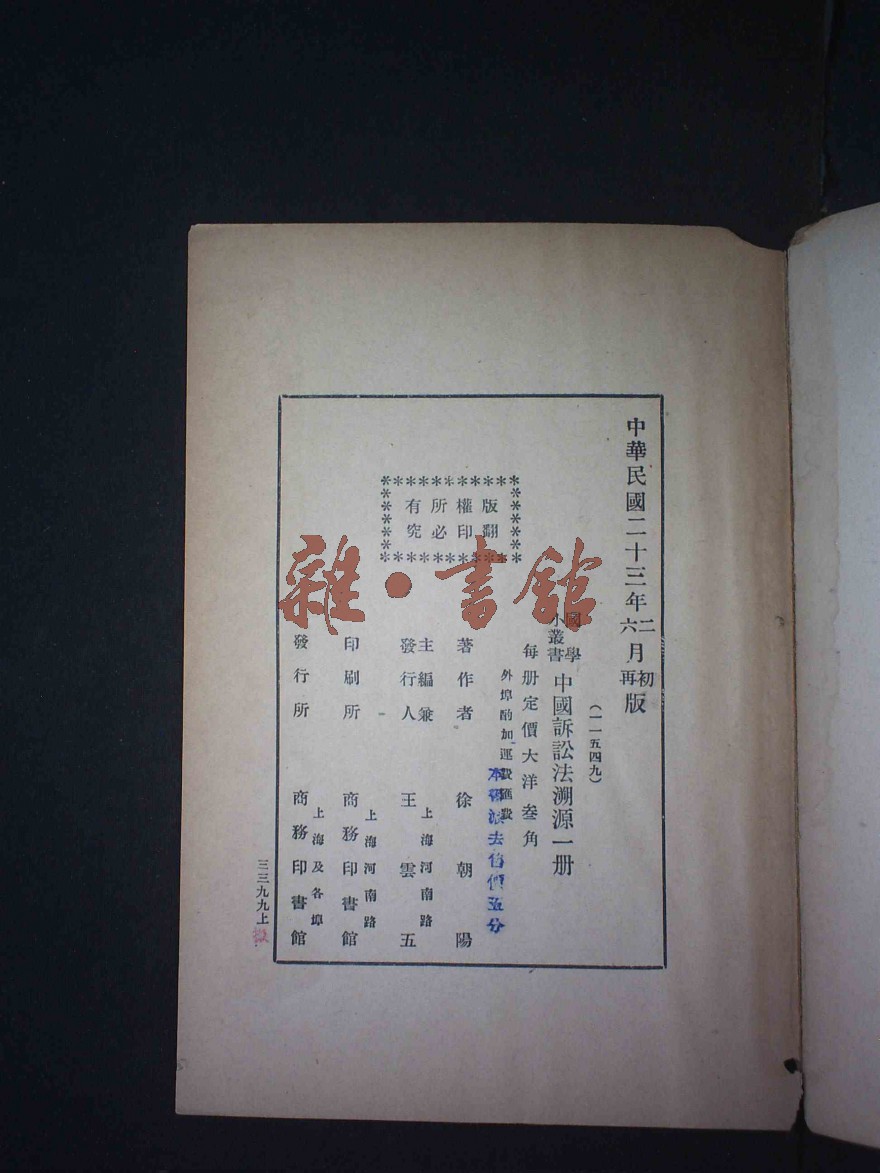 中華民國二十三年二月初版
六再
(一一五四九)
國學小叢書 中國訴訟法溯源一册
每册定價大洋叁角
外埠酌加運費匯費
本書減去舊價五分
版權所有
翻印必究
著作者 徐朝陽
主編兼發行人 王雲五
上海河南路
印刷所 商務印書館
上海河南路
發行所 商務印書館
上海及各埠
三三九九上
雜·書館